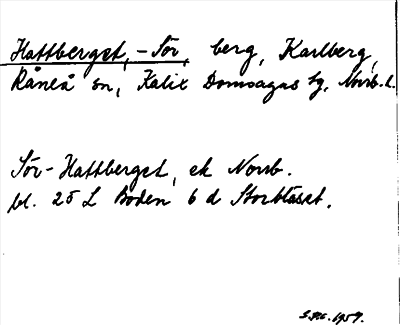 Hattberget, -Sör, berg, Karlberg,
Råneå sn, Kalix Domsagas tg, Norrb. l.
Sör-Hattberget, ek Norrb.
bl. 25 L Boden 6 d Storblåset.
1959.